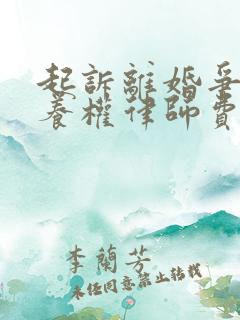 起訴離婚爭
養權律師費
李蘭芳
未经同意禁止转载